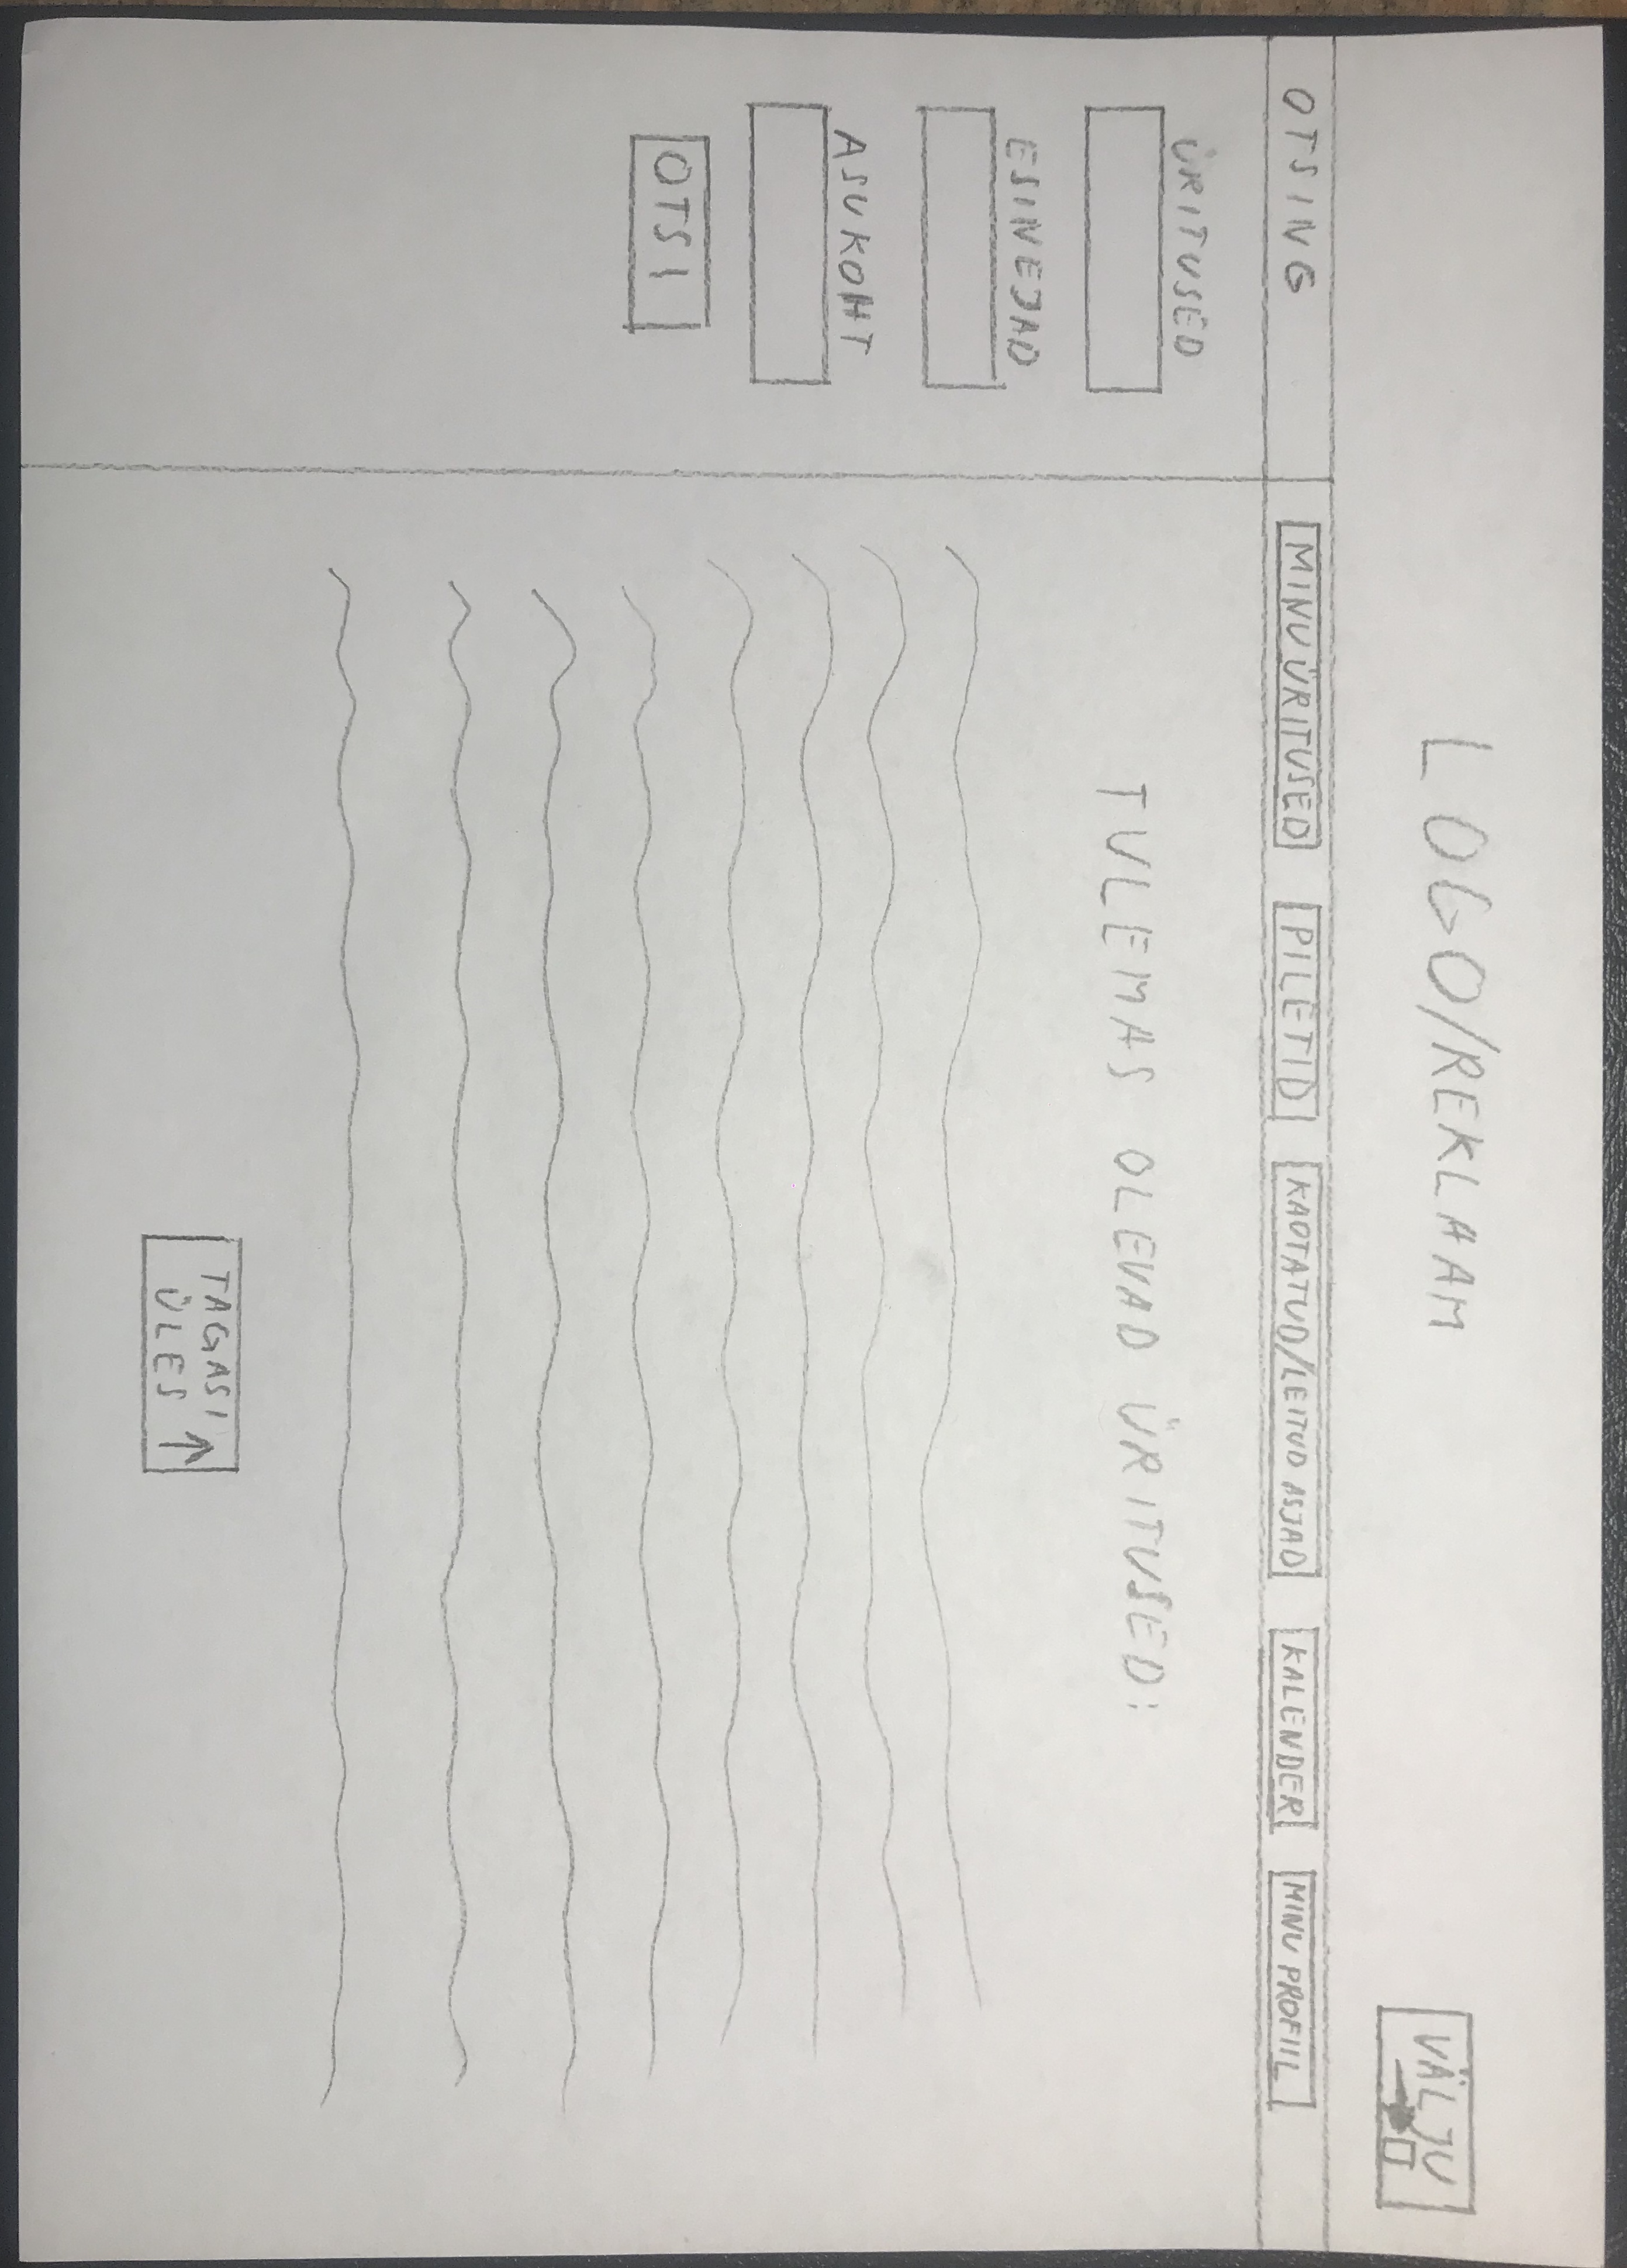 LOGO/REKLAAM
VÄLJU
OTSING
MINU ÜRITUSED
PILETID
KAOTATUD/LEITUD ASJAD
KALENDER
MINU PROFIIL
ÜRITUSED
ESINEJAD
ASUKOHT
OTSI
TULEMAS OLEVAD ÜRITUSED:
TAGASI
ÜLES